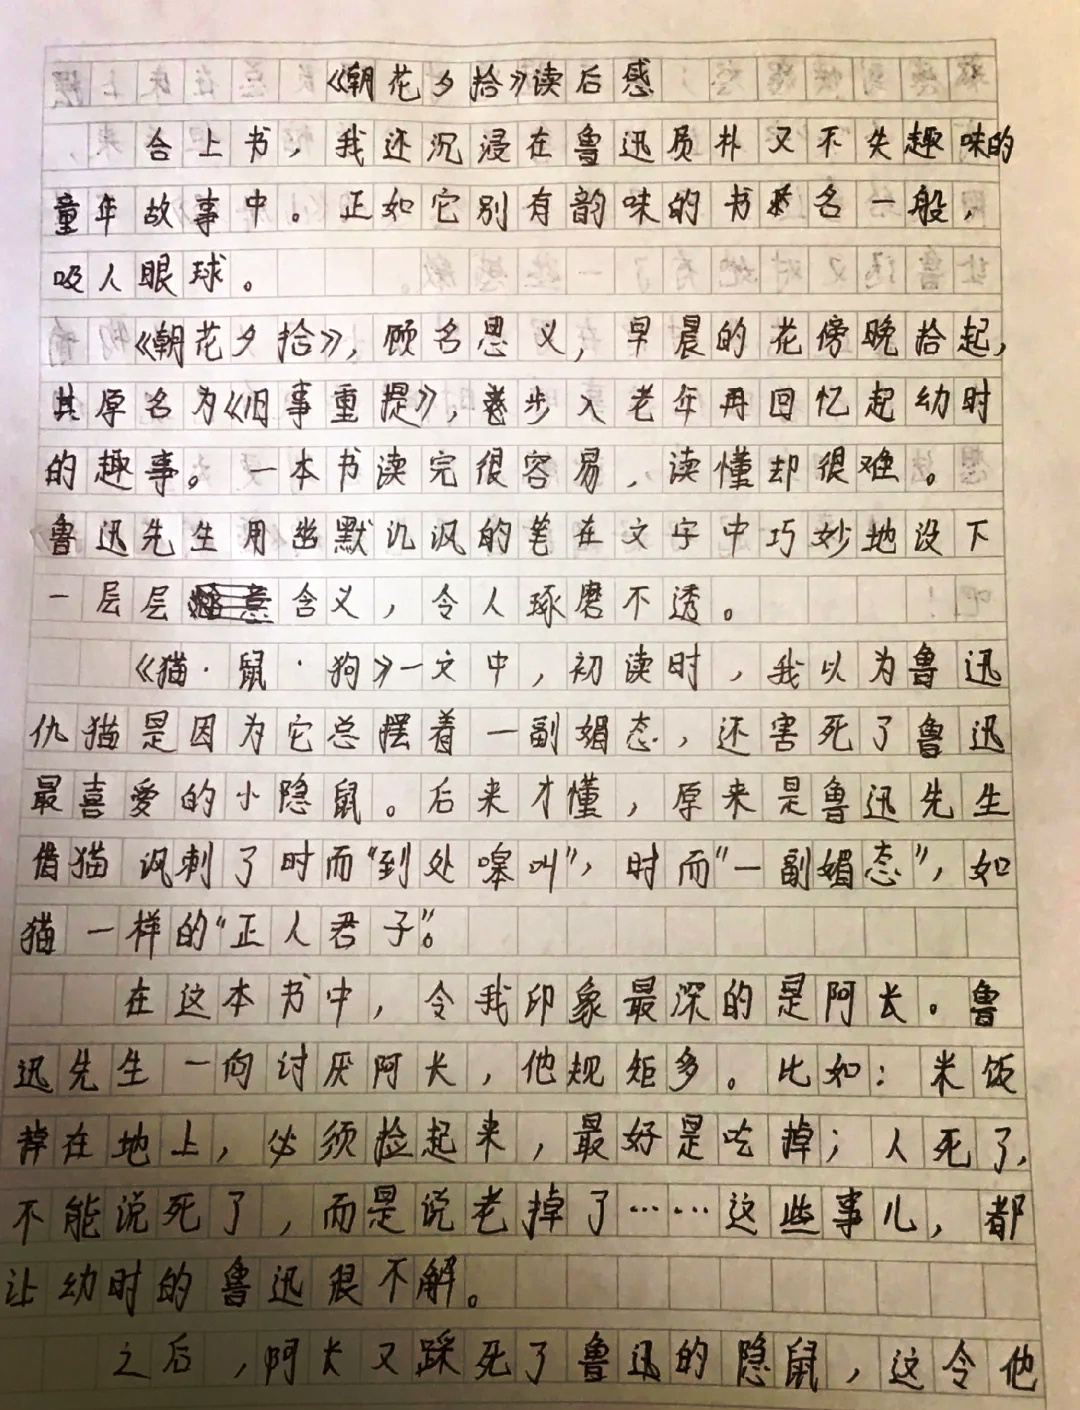 《朝花夕拾》读后感
合上书，我还沉浸在鲁迅质朴又不失趣味的
童年故事中。正如它别有韵味的书名一般，
吸人眼球。
《朝花夕拾》，顾名思义，早晨的花傍晚拾起，
其原名为《旧事重提》，步入老年再回忆起幼时
的趣事。一本书读完很容易，读懂却很难。
鲁迅先生用幽默讥讽的笔在文字中巧妙地设下
一层层含义，令人琢磨不透。
《猫·鼠·狗》一文中，初读时，我以为鲁迅
仇猫是因为它总摆着一副媚态，还害死了鲁迅
最喜爱的小隐鼠。后来才懂，原来是鲁迅先生
借猫讽刺了时而“到处嗥叫”，时而“一副媚态”，如
猫一样的“正人君子”。
在这本书中，令我印象最深的是阿长。鲁
迅先生一向讨厌阿长，他规矩多。比如：米饭
掉在地上，必须捡起来，最好是吃掉；人死了，
不能说死了，而是说老掉了……这些事儿，都
让幼时的鲁迅很不解。
之后，阿长又踩死了鲁迅的隐鼠，这令他